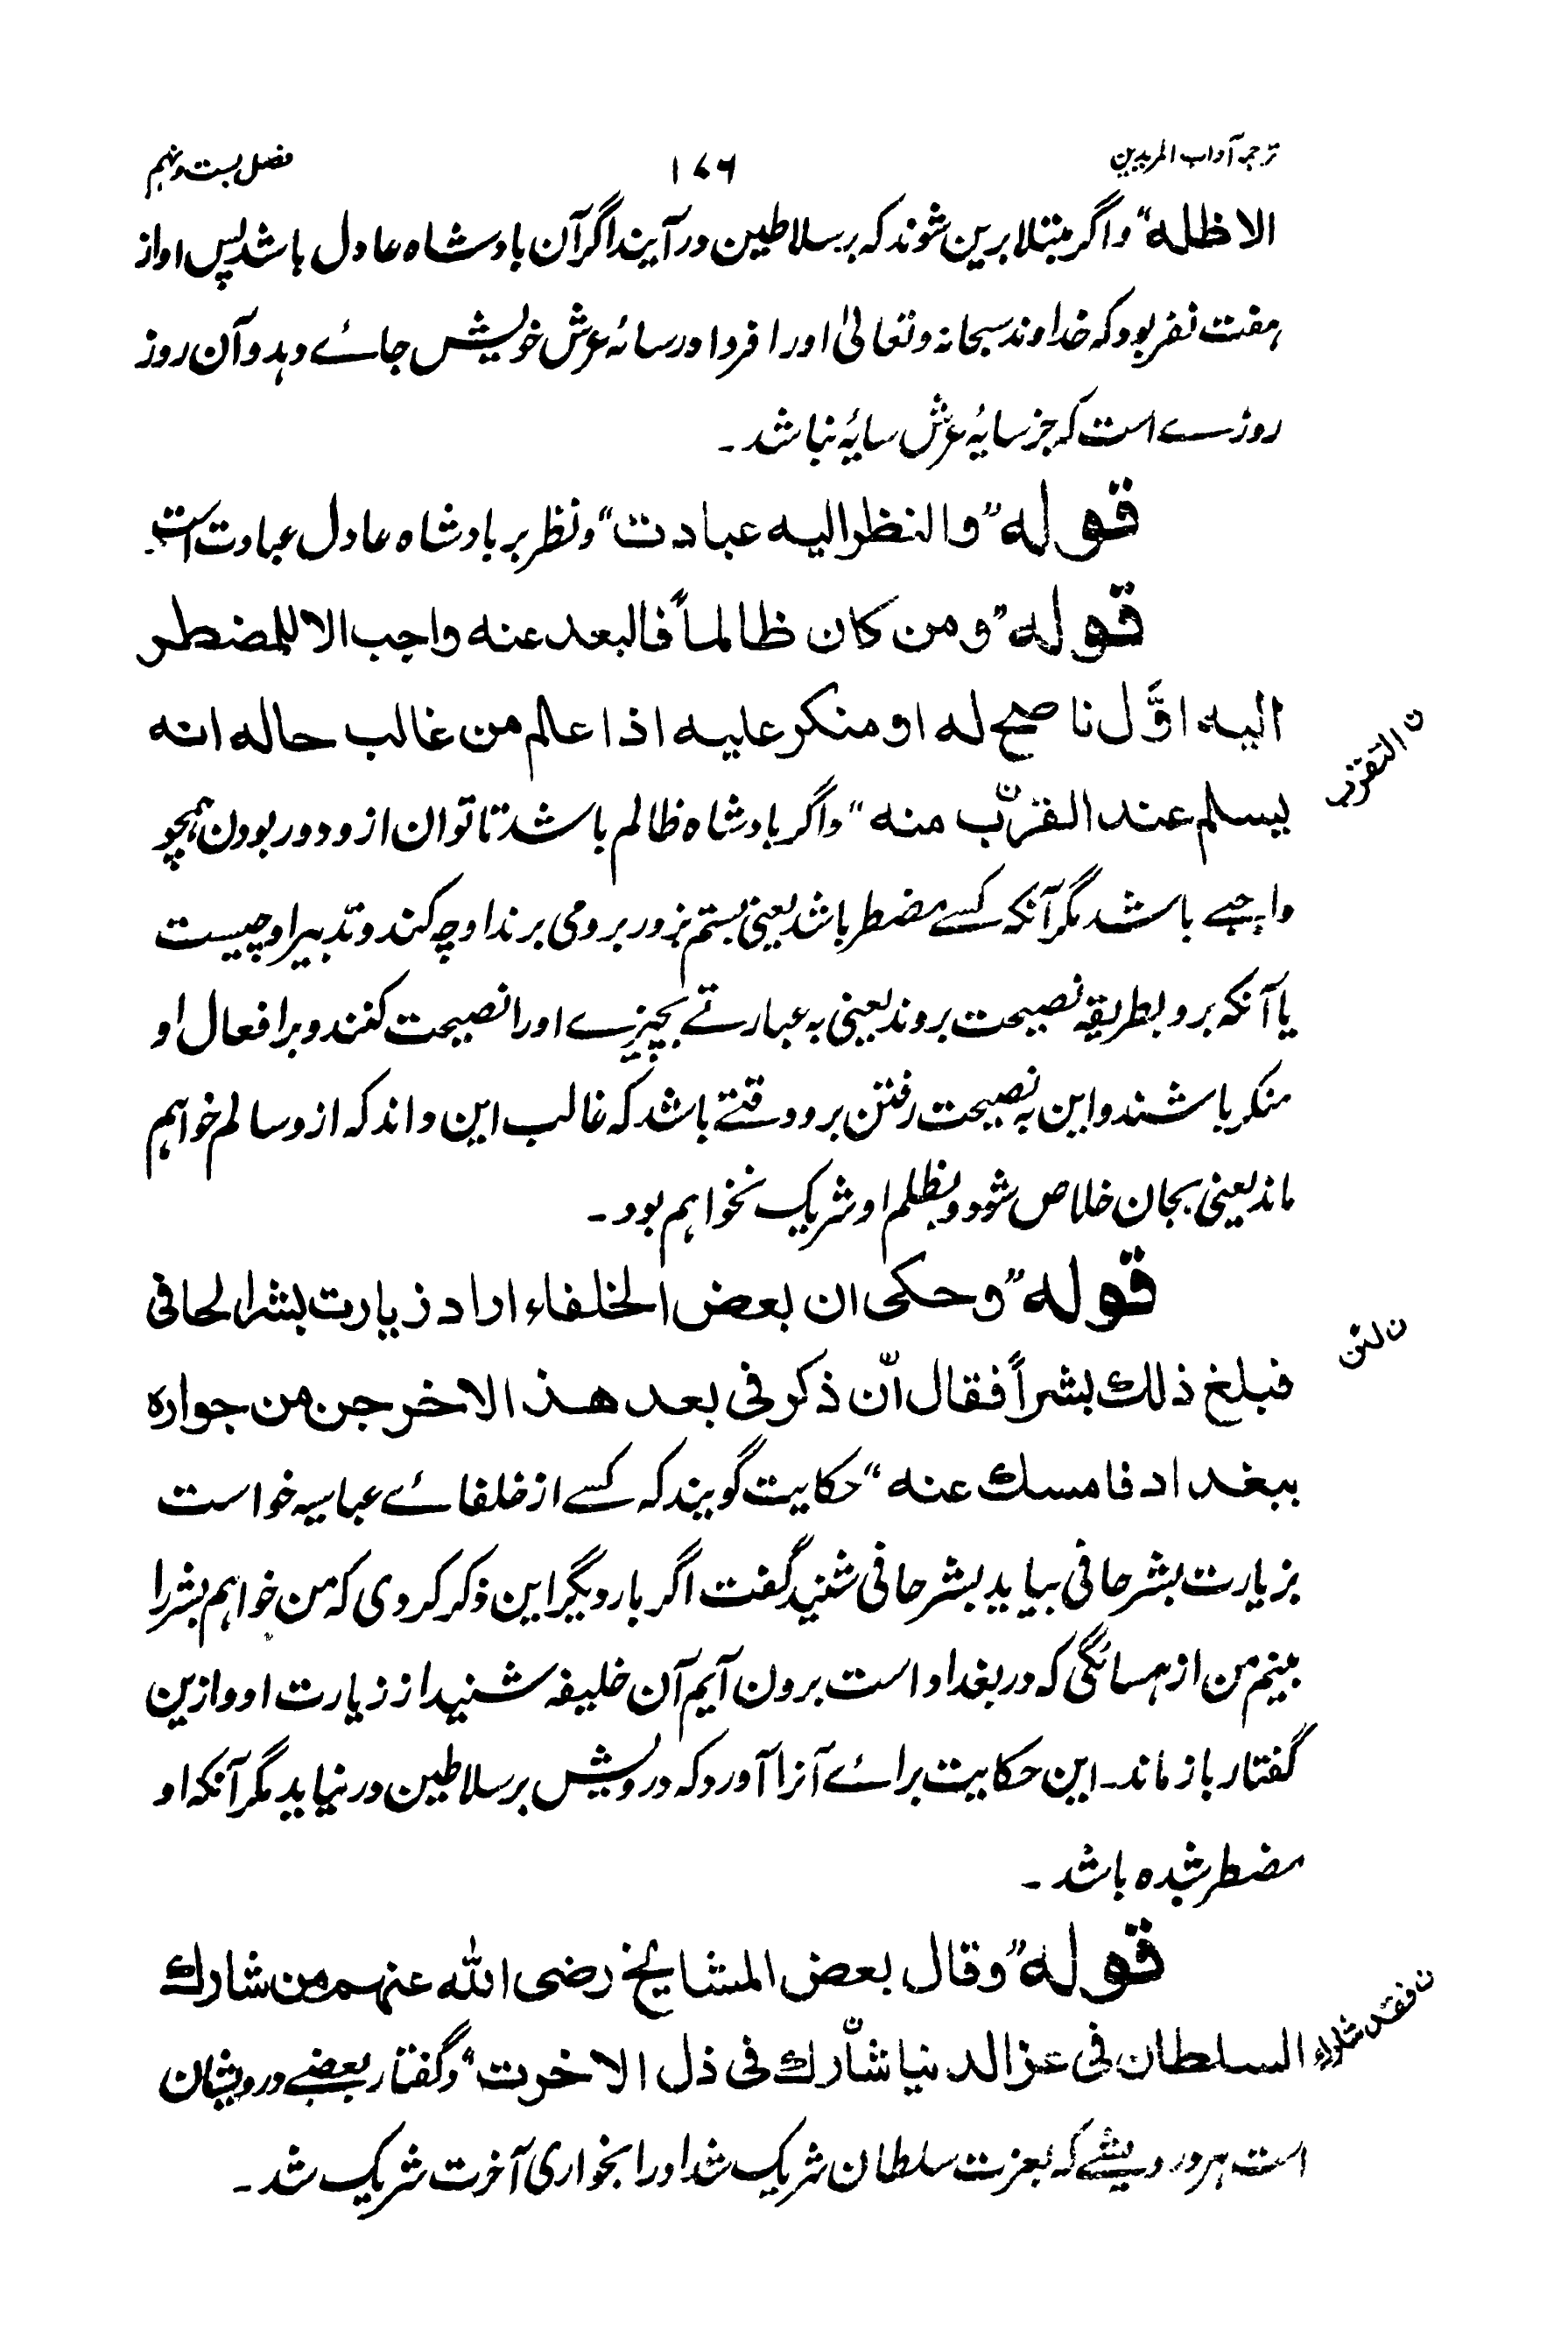 ترجمہ آداب المریدین ۱۷۶ فصل بست و نہم
الا ظله“ واگر مبتلا برین شوند کہ بر سلاطین در آیند اگر آن بادشاہ عادل باشد پس او از
ہفت نفر بود کہ خداوند سبحانہ وتعالیٰ اورا فردا در سائہ عرش خویش جائے دہد وآن روز
روزے است کہ جز سایۂ عرش سایۂ نباشد۔
قوله ”والنظر اليه عبادت“ ونظر بر بادشاہ عادل عبادت است۔
قوله ”ومن كان ظالماً فالبعد عنه واجب الا للمضطر
اليه اوّل ناصح له او منكر عليه اذا عالم من غالب حاله انه
يسلم عند القرب منه“ واگر بادشاہ ظالم باشد تا توان از و دور بودن ہمچو
ن التقرير
واجبے باشد مگر آنکہ کسے مضطر باشد یعنی بستم بزور برو می برند او چہ کند وتدبیر او چیست
یا آنکہ برو بطریقہ نصیحت بروند یعنی بہ عبارتے بچیزے اورا نصیحت کنند وبر افعال او
منکر باشند واین بہ نصیحت رفتن برو وقتے باشد کہ غالب این داند کہ ازو سالم خواہم
ماند یعنی بجان خلاص شود وبظلم او شریک نخواہم بود۔
قوله ”وحكى ان بعض الخلفاء اراد زيارت بشر الحافى
فبلغ ذلك بشراً فقال انّ ذكر فى بعد هذ الاخرجن من جواره
ن لئن
ببغداد فامسك عنه“ حکایت گویند کہ کسے از خلفائے عباسیہ خواست
بزیارت بشر حافی بیاید بشر حافی شنید گفت اگر بار دیگر این ذکر کردی کہ من خواہم بشر را
بینم من از ہمسائگی کہ در بغداد است برون آیم آن خلیفہ شنید از زیارت او وازین
گفتار باز ماند۔ این حکایت برائے آنرا آورد کہ درویش بر سلاطین در نیاید مگر آنکہ او
مضطر شدہ باشد۔
قوله ”وقال بعض المشايخ رضى الله عنهم من شارك
السلطان فى عز الدنيا شارك فى ذل الاخرت“ وگفتار بعضے درویشان
ن فقد شاركه
است ہر درویشے کہ بعزت سلطان شریک شد اورا بخواری آخرت شریک شد۔